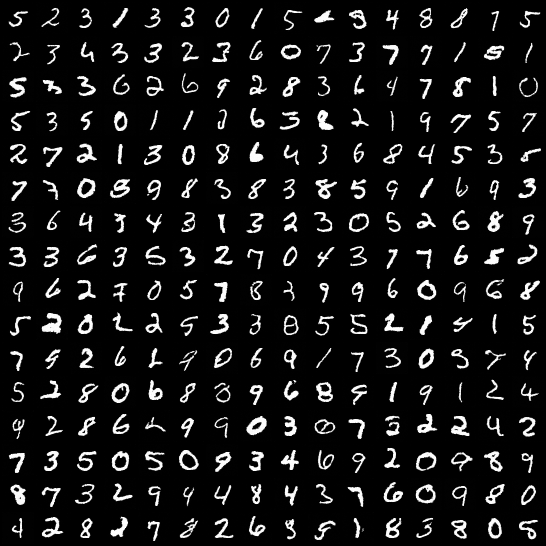 5 2 3 1 3 3 0 1 5 8 4 8 8 7 5
2 3 4 3 3 2 3 6 0 7 3 7 7 1 5 1
5 3 3 6 2 6 9 2 8 3 6 4 7 8 1 0
5 3 5 0 1 1 3 6 5 8 2 1 9 7 5 7
2 7 2 1 3 0 8 6 4 3 6 8 4 5 3 5
7 7 0 8 9 8 3 8 3 8 5 9 1 6 9 3
3 6 4 7 4 3 1 3 2 3 0 5 2 6 8 9
3 3 6 3 5 3 2 7 0 4 3 7 7 6 5 2
9 6 2 7 0 5 7 8 3 9 9 6 0 9 6 8
5 2 0 2 2 5 3 3 8 5 5 2 1 4 1 5
7 5 2 6 2 9 0 6 9 1 7 3 0 3 7 4
5 2 8 0 6 8 8 9 6 8 9 1 9 1 2 4
4 2 8 6 9 9 0 3 0 7 3 2 2 4 2
7 3 5 0 5 0 9 3 4 6 9 2 0 9 8 9
8 7 3 2 9 4 4 8 4 3 7 6 0 9 8 0
4 2 8 2 7 8 2 6 9 5 1 8 3 8 0 5